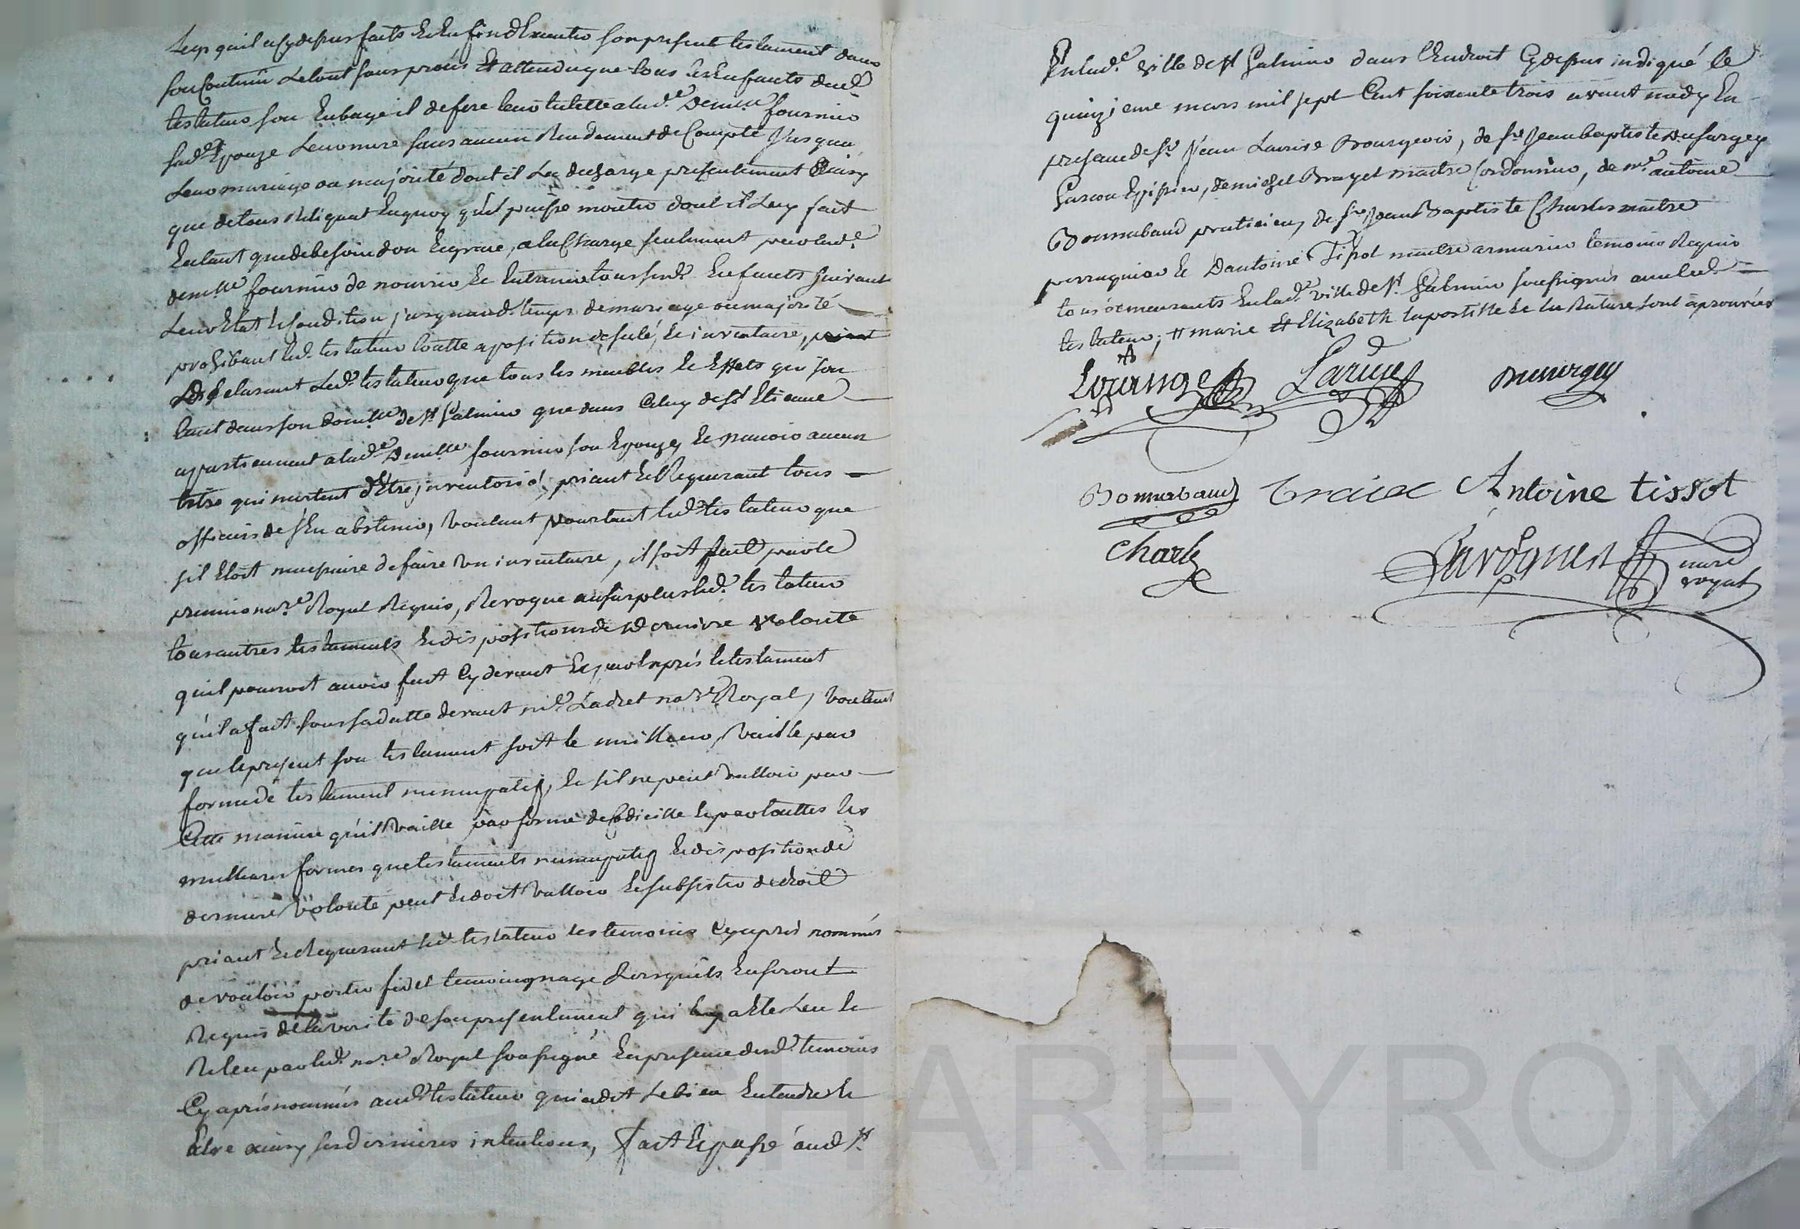 Legs quil a cy dessus faits et enfin d'Executer son present testament dans
son Contenu le tout sans procès Et attendu que tous les Enfants dud.
testateur sont En bas age il defere leur tutelle a lad.e Demlle fournier
sad.e Epouze leur mere sans aucun Rendement de Compte jusqua
leur mariage ou majorité dont il La decharge presentement Ainsy
que de tous Reliquat En quoy qu'il puisse monter dont il luy fait
En tant que de besoin don Et grace, a la Charge seulement par lad.e
demlle fournier de nourrir Et Entretenir tous sesd. Enfants suivant
leur Etat Et Condition jusquaud. temps de mariage ou majorité
prohibant led. testateur toutte aposition de scelé, Et inventaire,
Declarant Led. testateur que tous les meubles Et Effets qui sont
tant dans son domicille de St Galmier que dans Celuy de St Etienne
appartiennent a lad.e Demlle fournier son Epouze Et
qui meritent d'Etre inventorié priant Et Requerant tous
officiers de s'En abstenir, Voulant pourtant led. testateur que
sil Etoit necessaire de faire un inventaire, il soit fait par le
premier no.re Royal Requis, Revoque au surplus led. testateur
tous autres testaments Et dispositions de derniere volonté
quil pourroit avoir fait Cy devant Et par Exprès le testament
qu'il a fait sous sa datte devant m.e Ladret no.re Royal, voulant
que le present son testament soit le meilleur, Vaille par
forme de testament nuncupatif, Et sil ne peut valloir par
Cette maniere qu'il Vaille par forme de Codicille Et par touttes les
meilleures formes que testaments nuncupatif Et disposition de
derniere Volonté peut Et doit valloir Et subsister de droit
priant Et Requerant led. testateur les temoins Cy après nommés
de vouloir porter fidel temoignage Lorsquils En seront
Requis de la verité de son present testament qui a Eté Leu Et
Releu par led. no.re Royal soussigné En presence desd. temoins
Cy après nommés aud. testateur qui a dit le bien Entendre Et
Etre ainsy ses dernieres intentions, fait Et passé aud. St
En lad.e ville de St Galmier dans l'Endroit Cy dessus indiqué le
quinzieme mars mil sept Cent soixante trois avant midy En
presence de Sr Jean Larive Bourgeois, de Sr Jean baptiste Dusurgey
garcon Epicier, de michel Brayet maitre Cordonnier, de m.e antoine
Bonnabaud praticien, de Sr Jean Baptiste Charles maitre
perruquier Et D'antoine Tissot maitre armurier temoins Requis
tous demeurants En lad.e ville de St Galmier soussignés avec led.
testateur, # marie Et Elizabeth la postille Et la rature sont aprouvées
Lorange Larive Dusurgey
Bonnabaud Antoine tissot
Charle
nore
royal
CHAREYRON